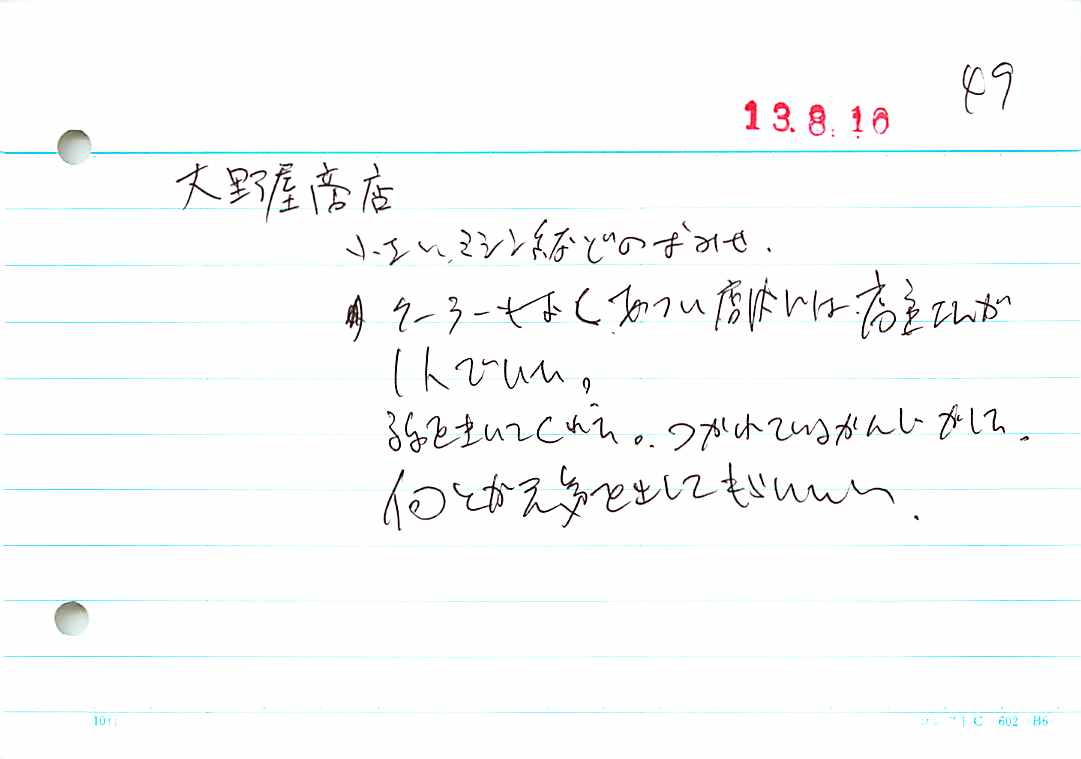 49
13.8.16
大野屋商店
小さい、ミシン糸などのおみせ.
クーラーもなくあつい店内には店主さんが
1人でいた。
話をきいてくれた。つかれているかんじがした。
何とか元気を出してもらいたい.
10行
602 B6